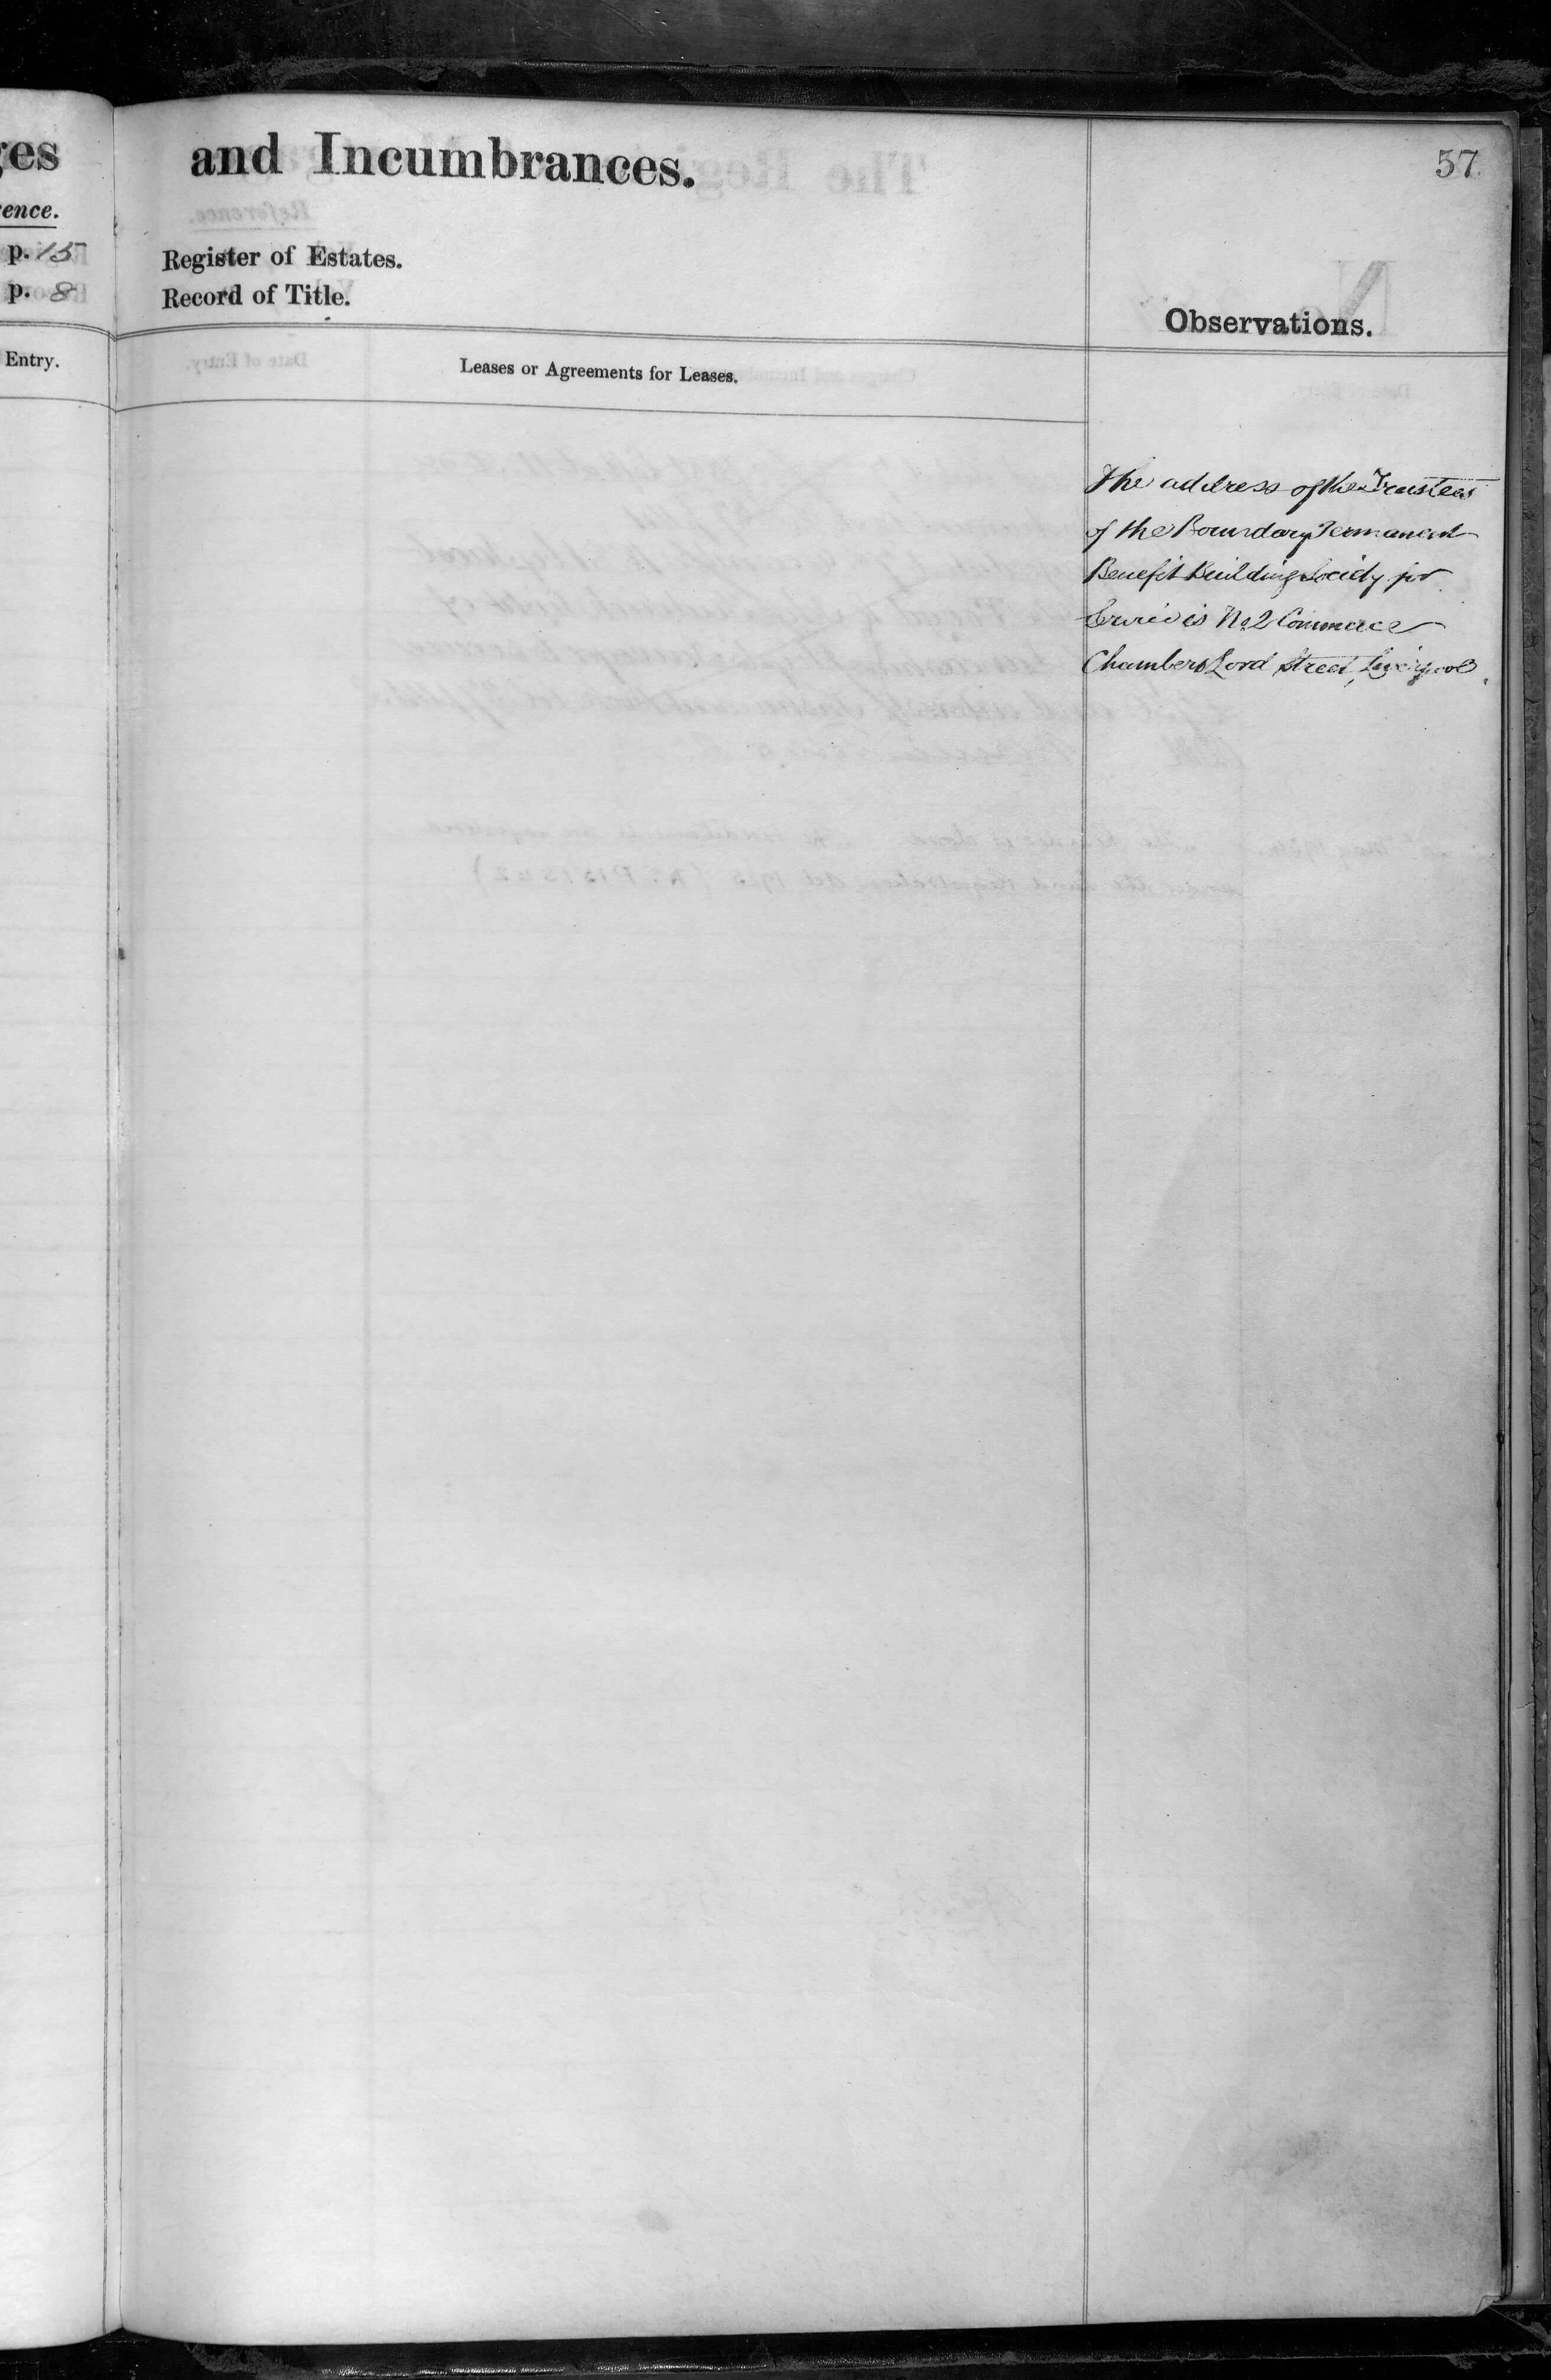 ges
and Incumbrances.
57
ence.
p. 15
Register of Estates.
p. 8
Record of Title.
Observations.
Entry.
Leases or Agreements for Leases.
The address of the Trustees
of the Boundary Permanent
Benefit Building Society for
Service is No 2 Commerce
Chambers Lord Street, Liverpool.